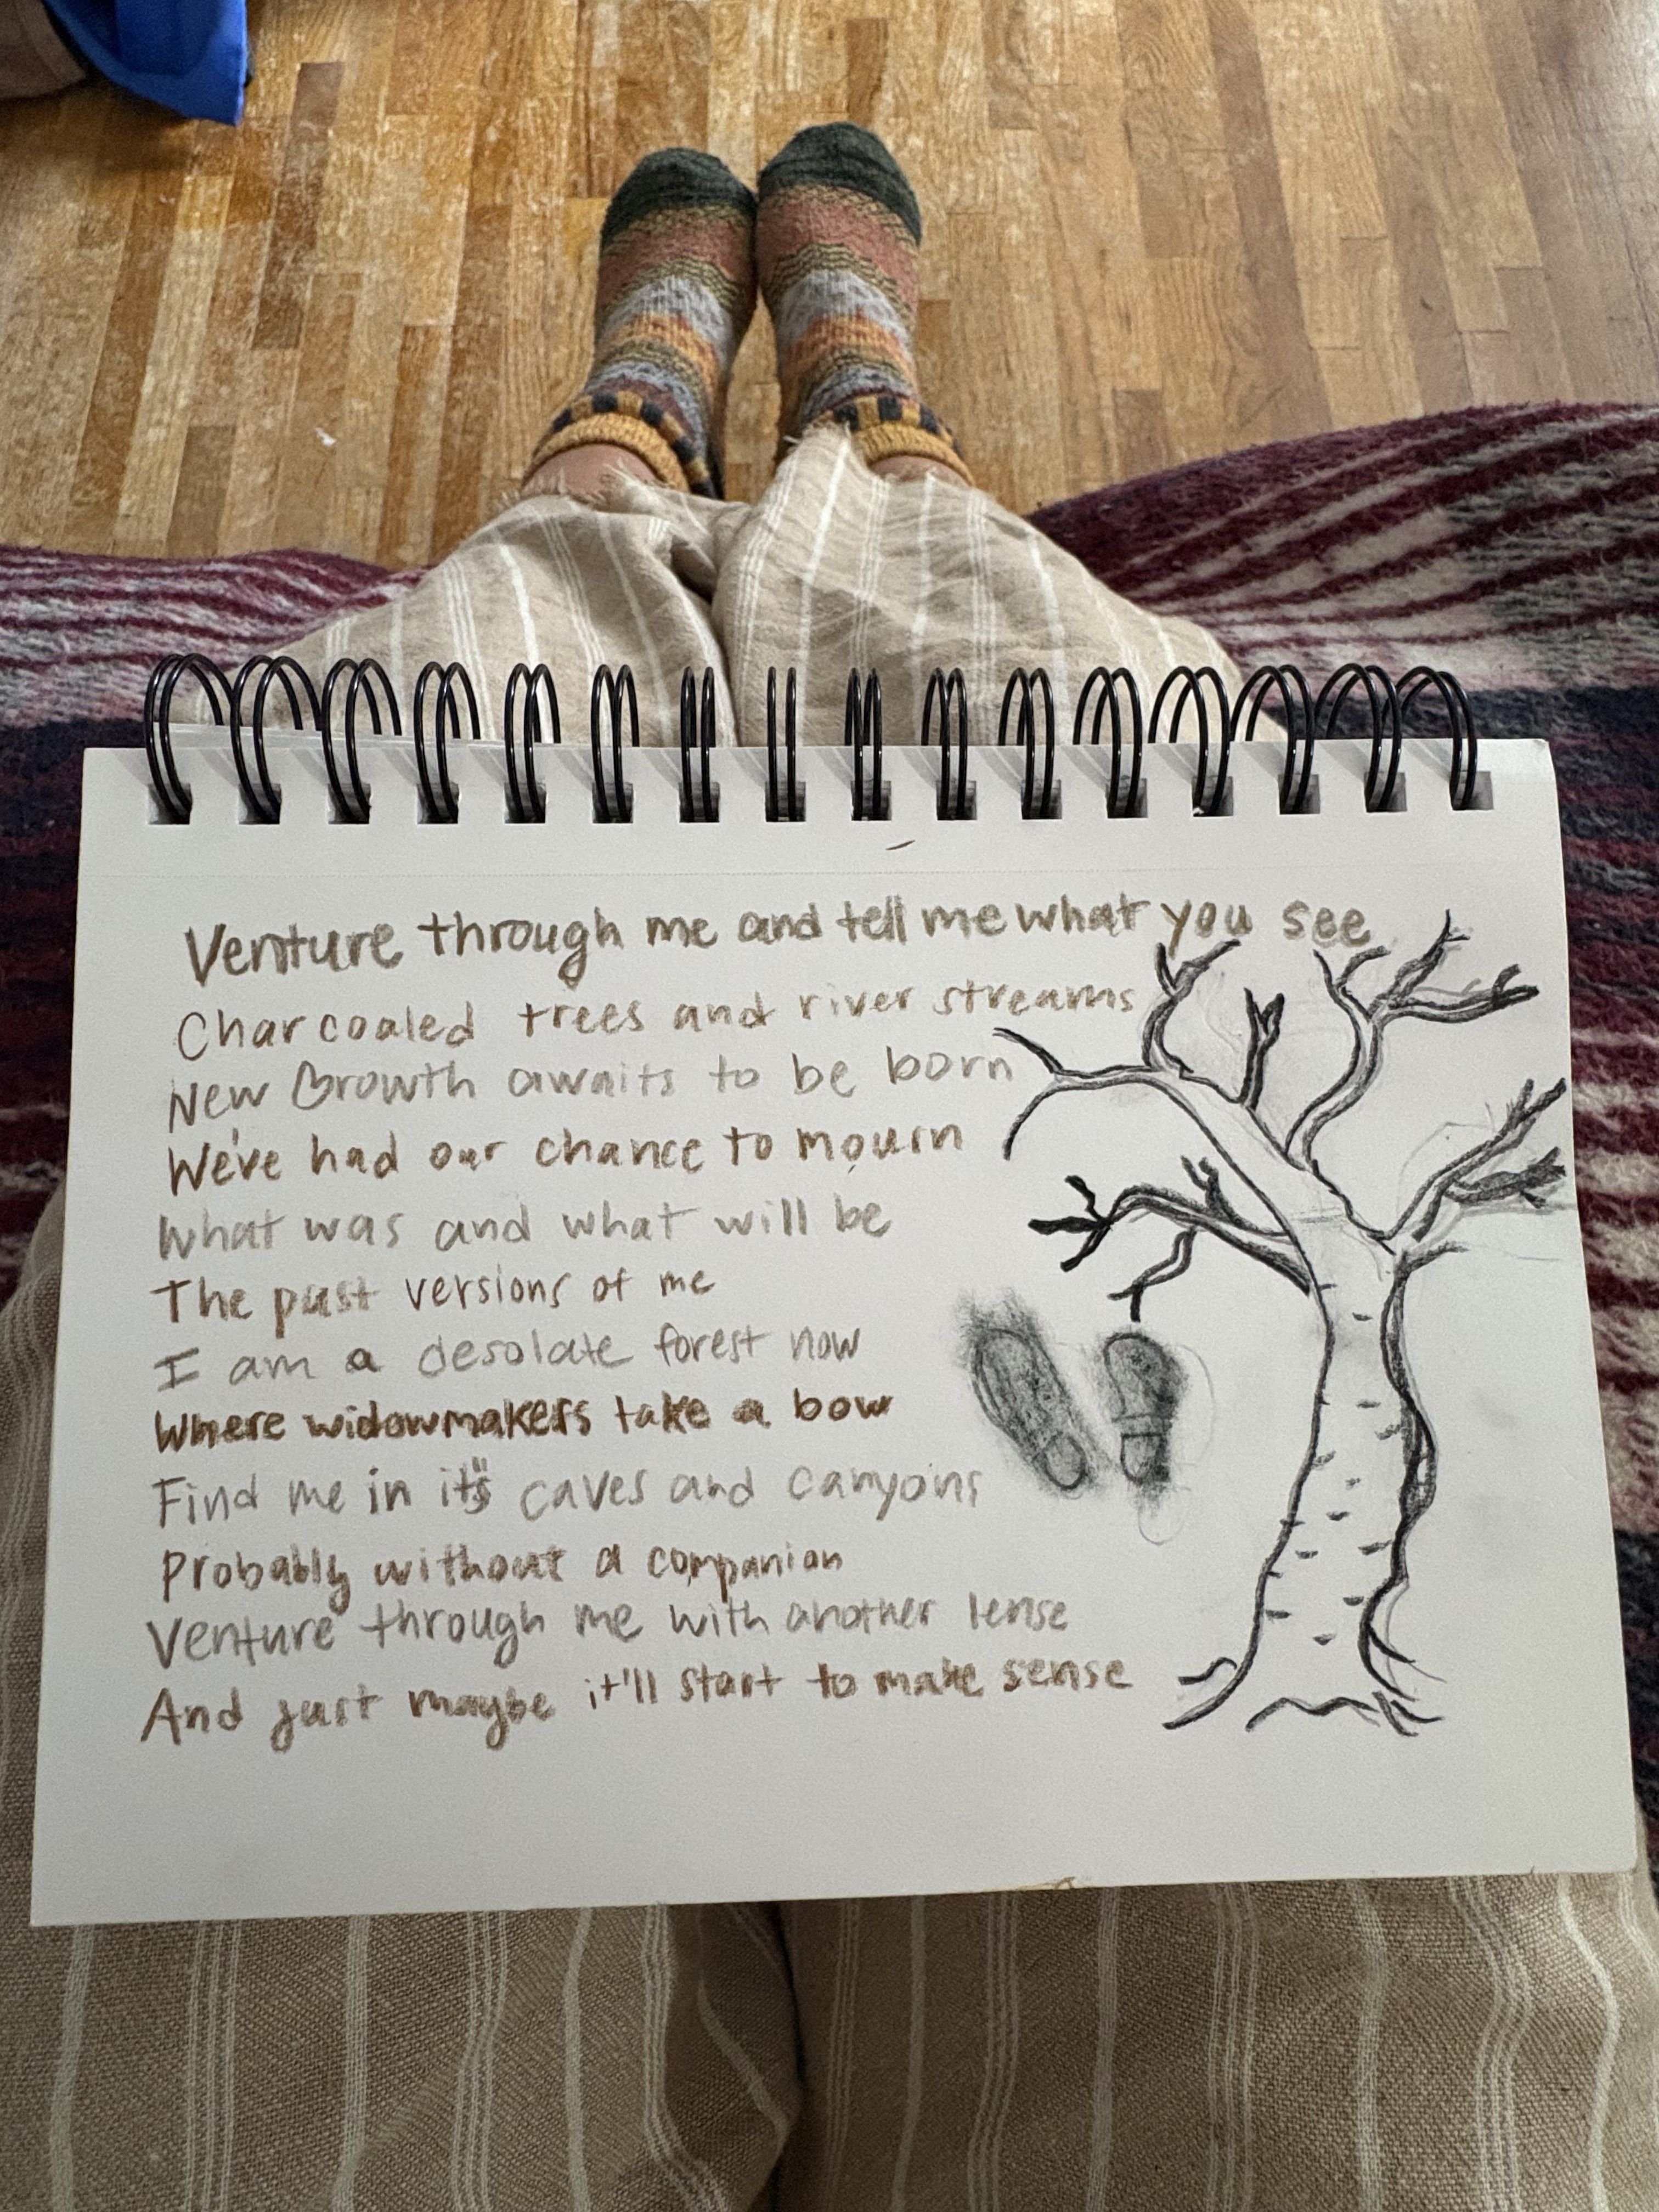 Venture through me and tell me what you see
Charcoaled trees and river streams
New Growth awaits to be born
We've had our chance to mourn
What was and what will be
The past versions of me
I am a desolate forest now
Where widowmakers take a bow
Find me in it's caves and canyons
Probably without a companion
Venture through me with another lense
And just maybe it'll start to make sense